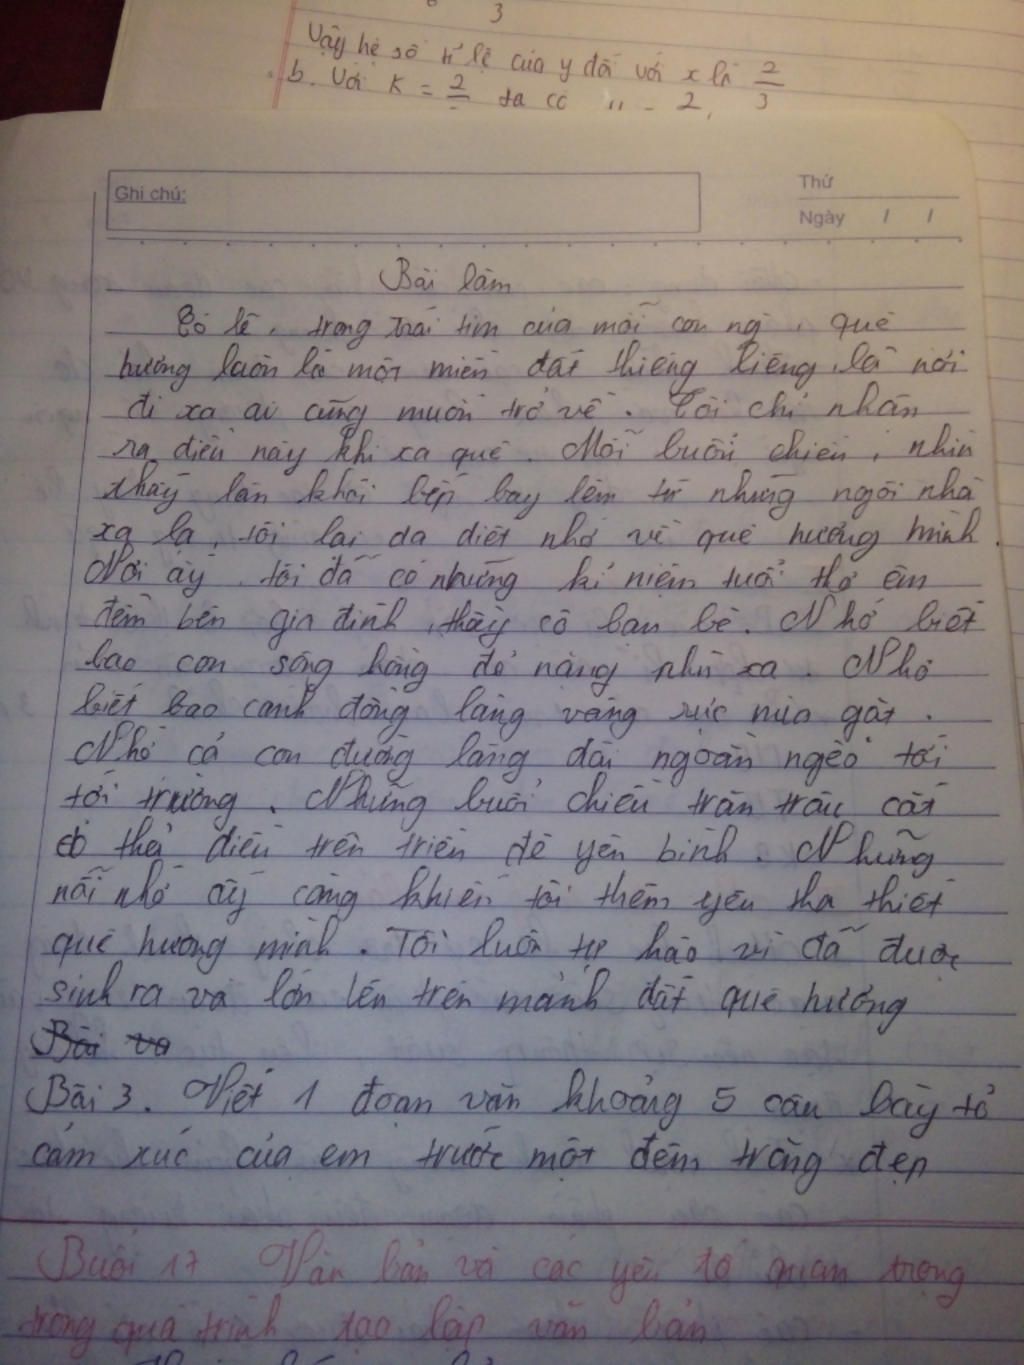 3
Vậy hệ số tỉ lệ của y đối với x là 2/3
b. Với K = 2 ta có
Ghi chú:
Thứ
Ngày / /
Bài làm
Có lẽ, trong trái tim của mỗi con ng, quê
hương luôn là một miền đất thiêng liêng, là nơi
đi xa ai cũng muốn trở về. Tôi chỉ nhận
ra điều này khi xa quê. Mỗi buổi chiều, nhìn
thấy làn khói bếp bay lên từ những ngôi nhà
xa lạ, tôi lại da diết nhớ về quê hương mình.
Nơi ấy, tôi đã có những kỉ niệm tuổi thơ êm
đềm bên gia đình, thầy cô bạn bè. Nhớ biết
bao con sông hồng đỏ nặng phù xa. Nhớ
biết bao cánh đồng làng vàng rực mùa gặt.
Nhớ cả con đường làng dài ngoằn ngèo tới
tới trường. Những buổi chiều trăn trâu cắt
cỏ thả diều trên triền đê yên bình. Những
nỗi nhớ ấy càng khiến tôi thêm yêu tha thiết
quê hương mình. Tôi luôn tự hào vì đã được
sinh ra và lớn lên trên mảnh đất quê hương
Bài va
Bài 3. Viết 1 đoạn văn khoảng 5 câu bày tỏ
cảm xúc của em trước một đêm trăng đẹp
Buổi 17 Văn bản và các yếu tố quan trọng
trong quá trình tạo lập văn bản